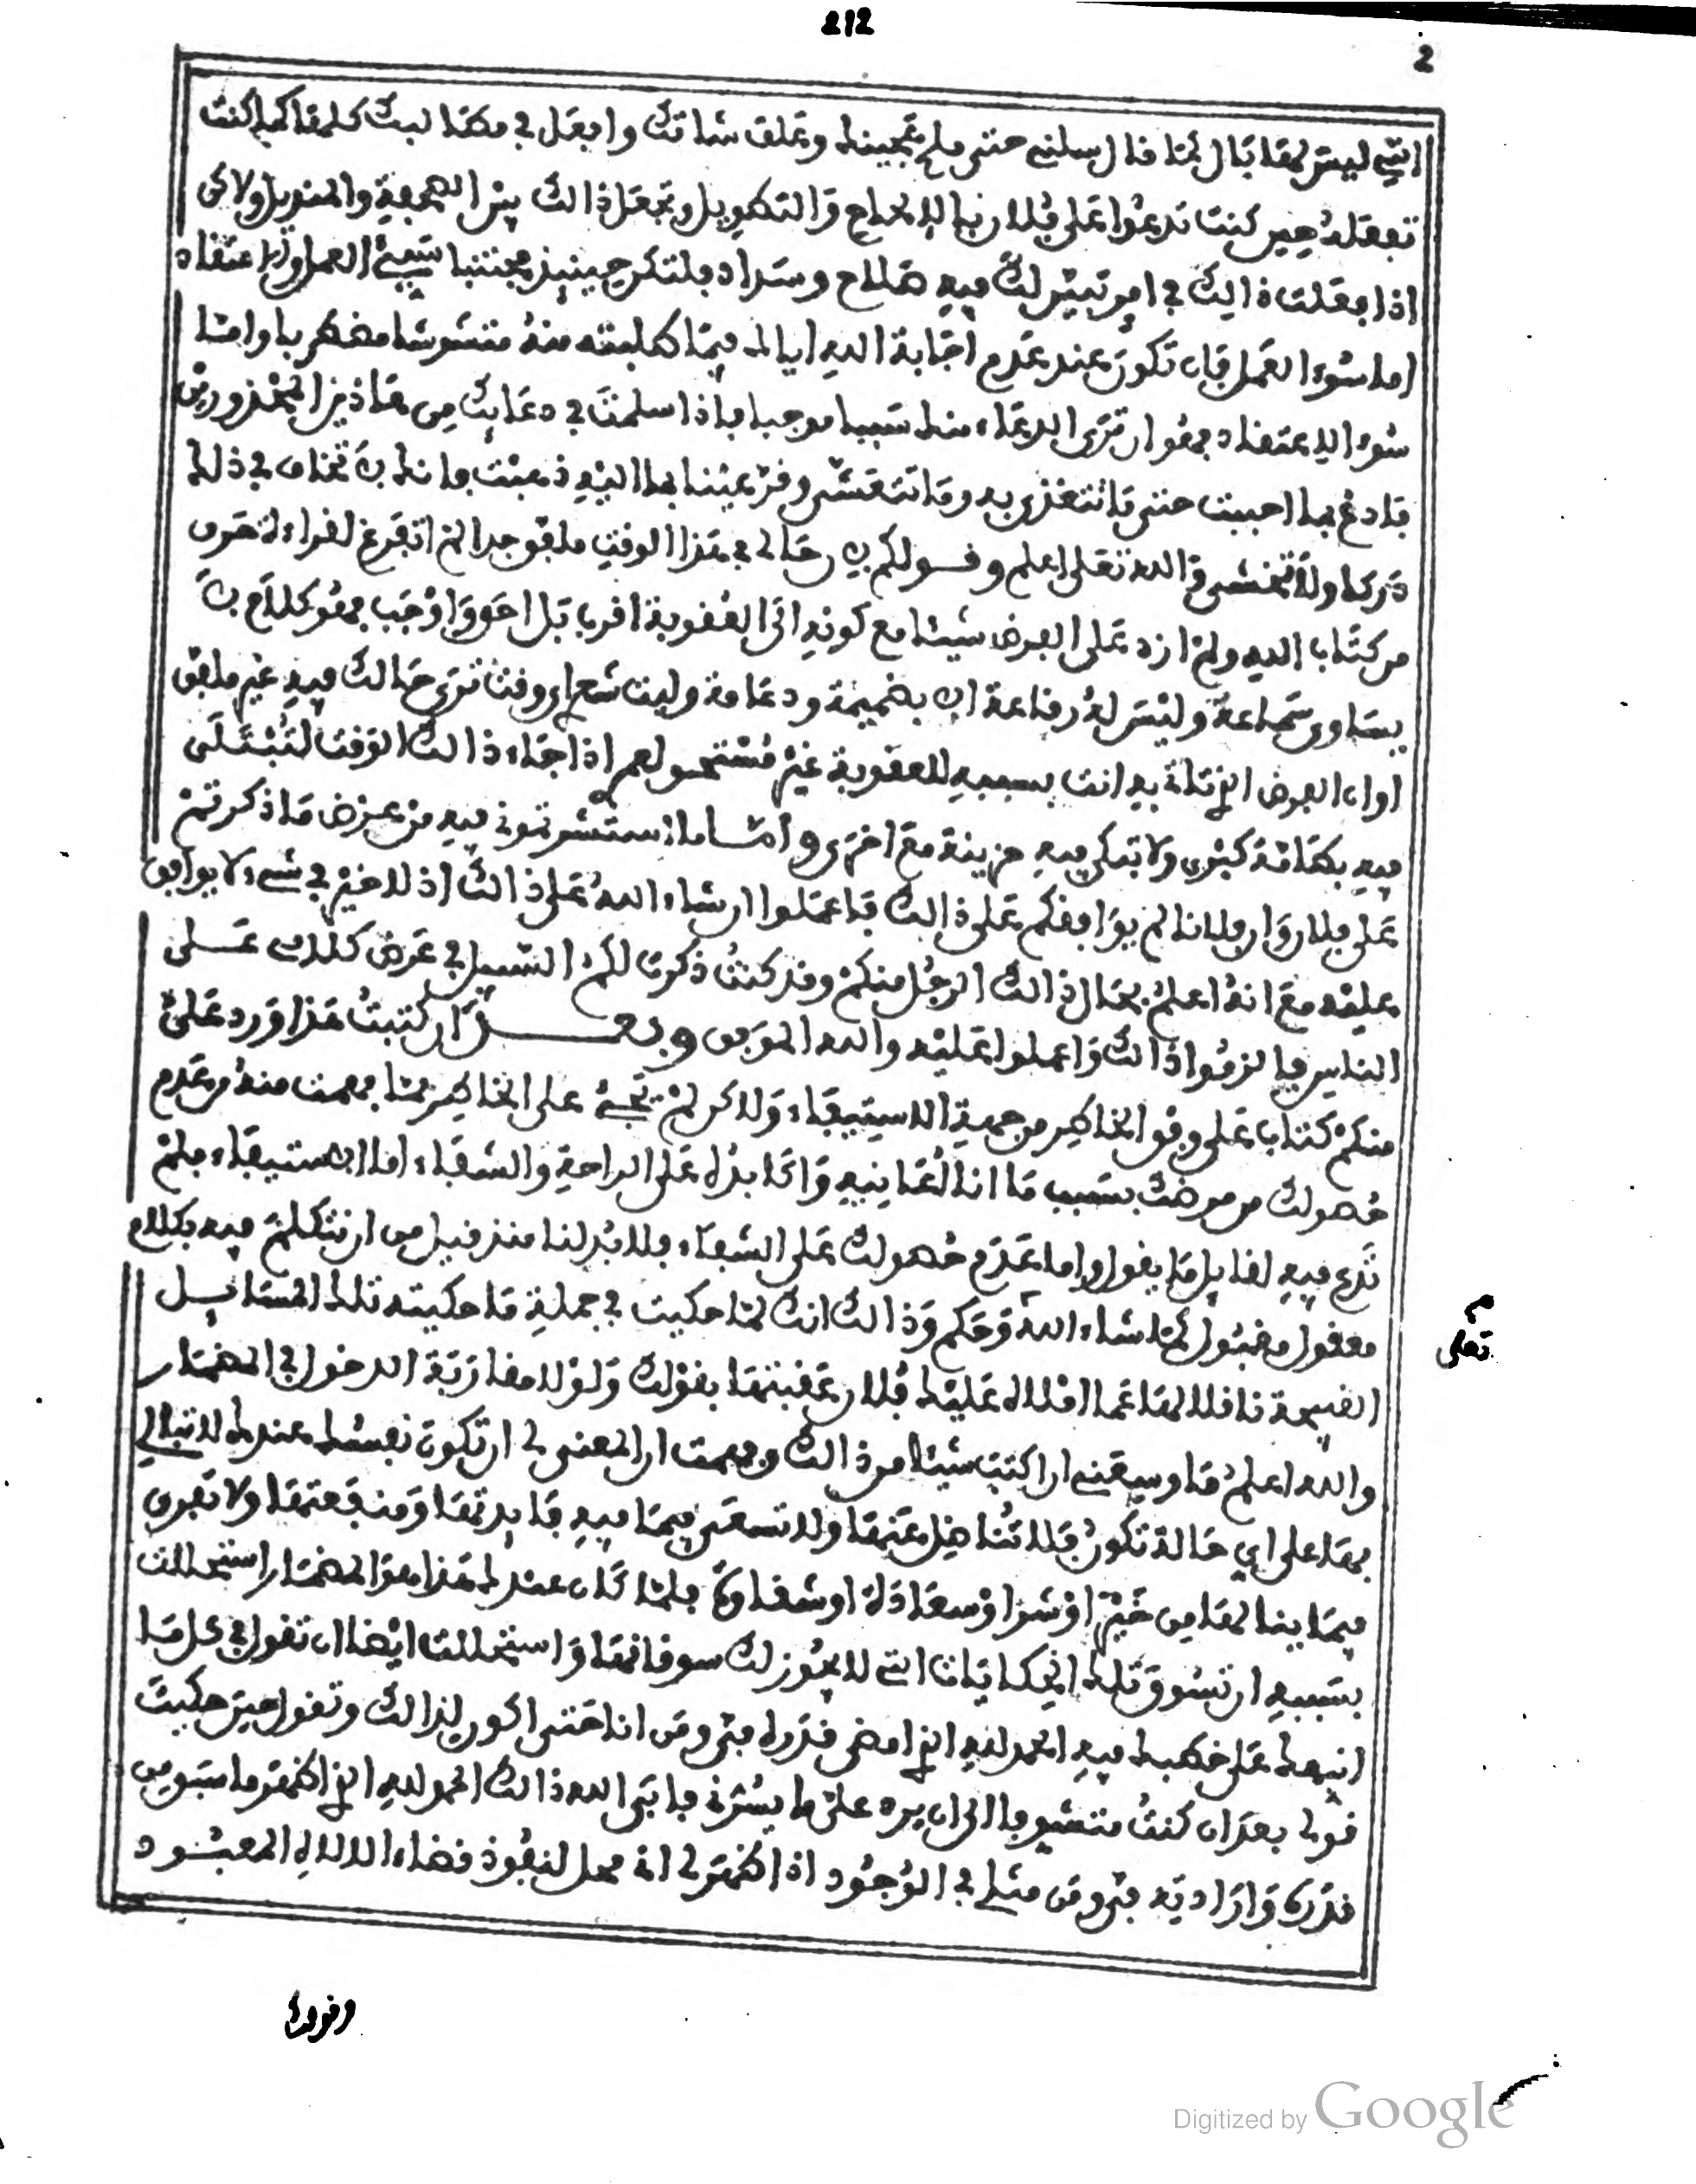 212
2
التي ليس لها بال لما قال سلني حتى ملح عجينك وعلف شاتك وافعل في مكتا لبك كلها كما كنت
تفعله حين كنت تدعوا على فلان بالالحاح والتطويل وتجعل ذالك بين الهجعة والمنديل ولاكن
اذا فعلت ذالك في امر تبين لك فيه صلاح وسداد فلتكن حينئذ مجتنبا شيئين العمل والاعتقاد
اما سوء العمل فان تكون عند عدم اجابة الله اياك فيما طلبته منه متشوشا مضطربا واما
سوء الاعتقاد فهو ان ترى الدعاء منك سببا موجبا فاذا سلمت في دعائك من هاذين المحذورين
فادع بما احببت حتى ما تتغذى به وما تتعشى وقر عينا بما اليه ذهبت فانك لا تخاف في ذلك
دركا ولا تخشى والله تعلى اعلم وقولكم ان حالي في هذا الوقت ملفق جدا لم اتفرغ لقراءة حرف
من كتاب الله ولم ازد على الفرض شيئا مع كونه الى العقوبة اقرب بل احق واوجب فهو كلام لا
يساوى سماعه وليس له رفاعة الا بضميمة ودعامة وليت شعري اي وقت ترى حالك فيه غير ملفق
اوان الفرض الذي تاتي به انت بسببه للعقوبة غير مستحق لعم اذا جاء ذالك الوقت لتبتلى
فيه بطامة كبرى ولا تبكي فيه حزينة مع اخرى واما ما استشرتموني فيه من عرض ما ذكرتم
على فلان وان فلانا لم يوافقكم على ذالك فاعملوا ان شاء الله على ذالك اذ لا خير في شيء لا يوافق
عليه مع انه اعلم بحال ذالك الرجل منكم وقد كنت ذكرت لكم السبيل في عرض كلامي على
الناس فالزموا ذالك واعملوا عليه والله الموفق وبعد ان كتبت هذا ورد علي
منكم كتاب على وفق الخاطر من جهة الاستيفاء ولاكن لم يجئ على الخاطر مما فهمت منه من عدم
حصولك من مرضك بسبب ما انا لعانيه واكابده على الراحة والشفاء اما الاستيفاء فلم
تدع فيه لقايل ما يقول واما عدم حصولك على الشفاء فلا بد لنا منذ قيل من ان نتكلم فيه بكلام
معقول مقبول لما شاء الله وحكم وذالك انك لما حكيت في جملة ما حكيته تلك المسائل
تعلى
القبيحة ناقلا لها عما املاه عليك فلان عقبتها بقولك ولولا مقاربة الدخول في المضمار
والله اعلم ما وسعني ان اكتب شيئا من ذالك وفهمت ان المعنى في ان تكون نفسك عندك لا تبالي
بها على اي حالة تكون فلا تناضل عنها ولا تسعى فيما فيه فايدتها ومنفعتها ولا تفرق
فيما ينالها من خير او شر او سعادة او شقاوة فلما كان عندك هذا هو المضمار استحللت
بسببه ان تسوق تلك الحكايات التي لا يجوز لك سوقانها واستحللت ايضا ان تقول في كل ما
انبهك على خطبك فيه الحمد لله الذي امضى قدره في ومن انا حتى اكون لذالك وتقول حين حكيت
قولى بعد ان كنت متشوفا الى ان يرد علي ما يسرني فابى الله ذالك الحمد لله الذي اظهر ما سبق من
قدره وارادته في ومن مثلي في الوجود اذ اظهر لي اني محل لنفوذ قضاء الالاه المعبود
وقولك
Digitized by Google